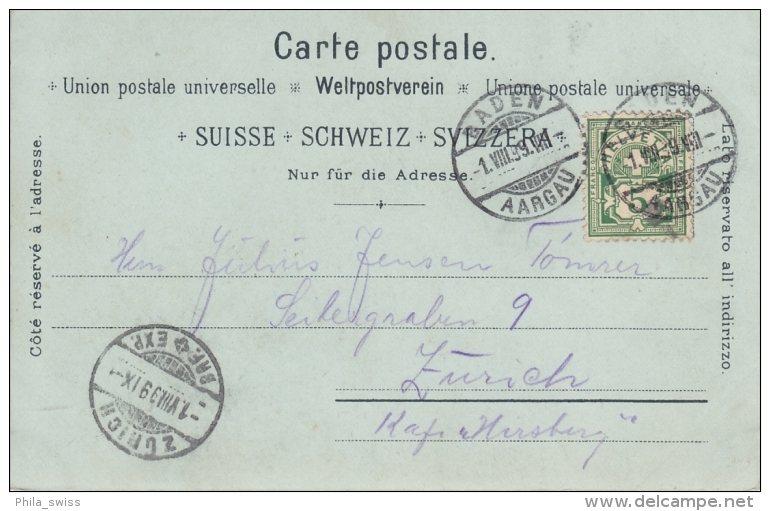 Carte postale.
Union postale universelle Weltpostverein Unione postale universale
SUISSE SCHWEIZ SVIZZERA
Nur für die Adresse.
Côté réservé à l'adresse.
Lato riservato all' indirizzo.
BADEN
1.VIII.99.VII
AARGAU
BADEN
1.VIII.99.VII
AARGAU
HELVETIA
5
Herrn Julius Jensen
Seilergraben 9
Zürich
Kafe
BRF. EXP.
1.VIII.99 IX
ZÜRICH
Phila_swiss
delcampe.net